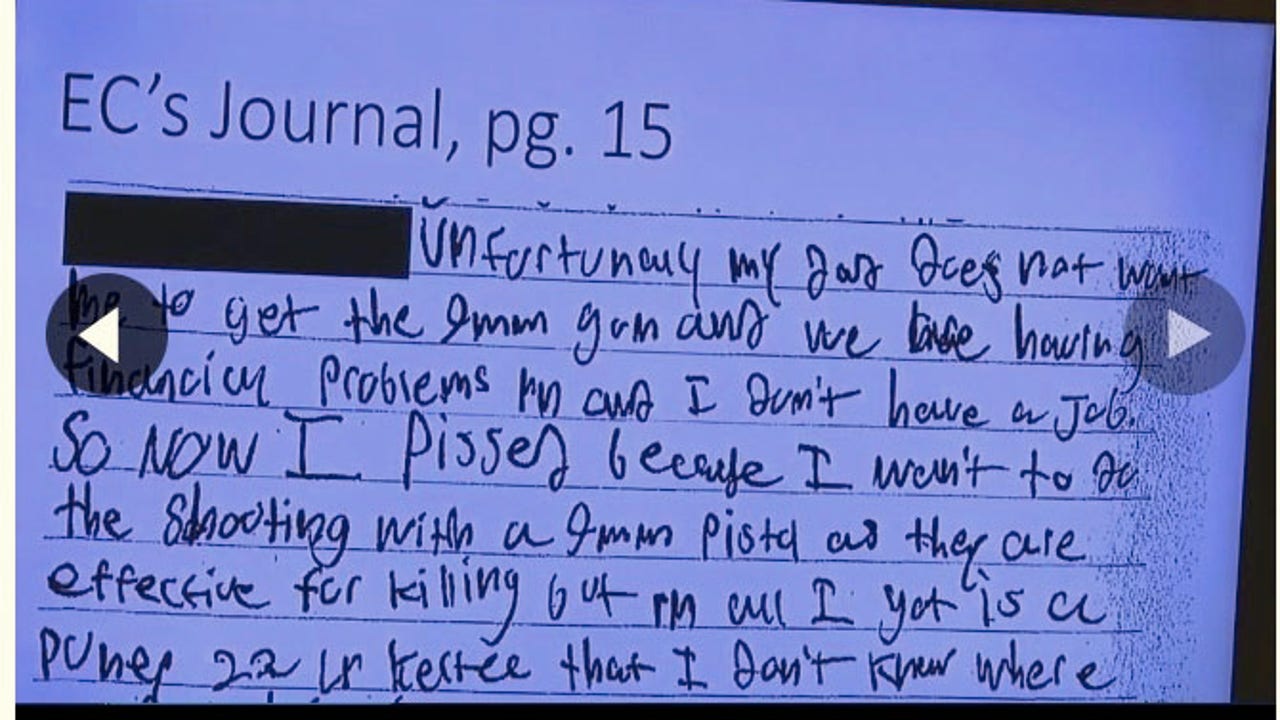 EC's Journal, pg. 15
Unfortunauly my dad does not want
me to get the 9mm gun and we are having
financial problems rn and I don't have a Job.
So NOW I pissed because I wan't to do
the Shooting with a 9mm Pistol as they are
effective for killing but rn all I got is a
puney 22 lr keltec that I don't know where